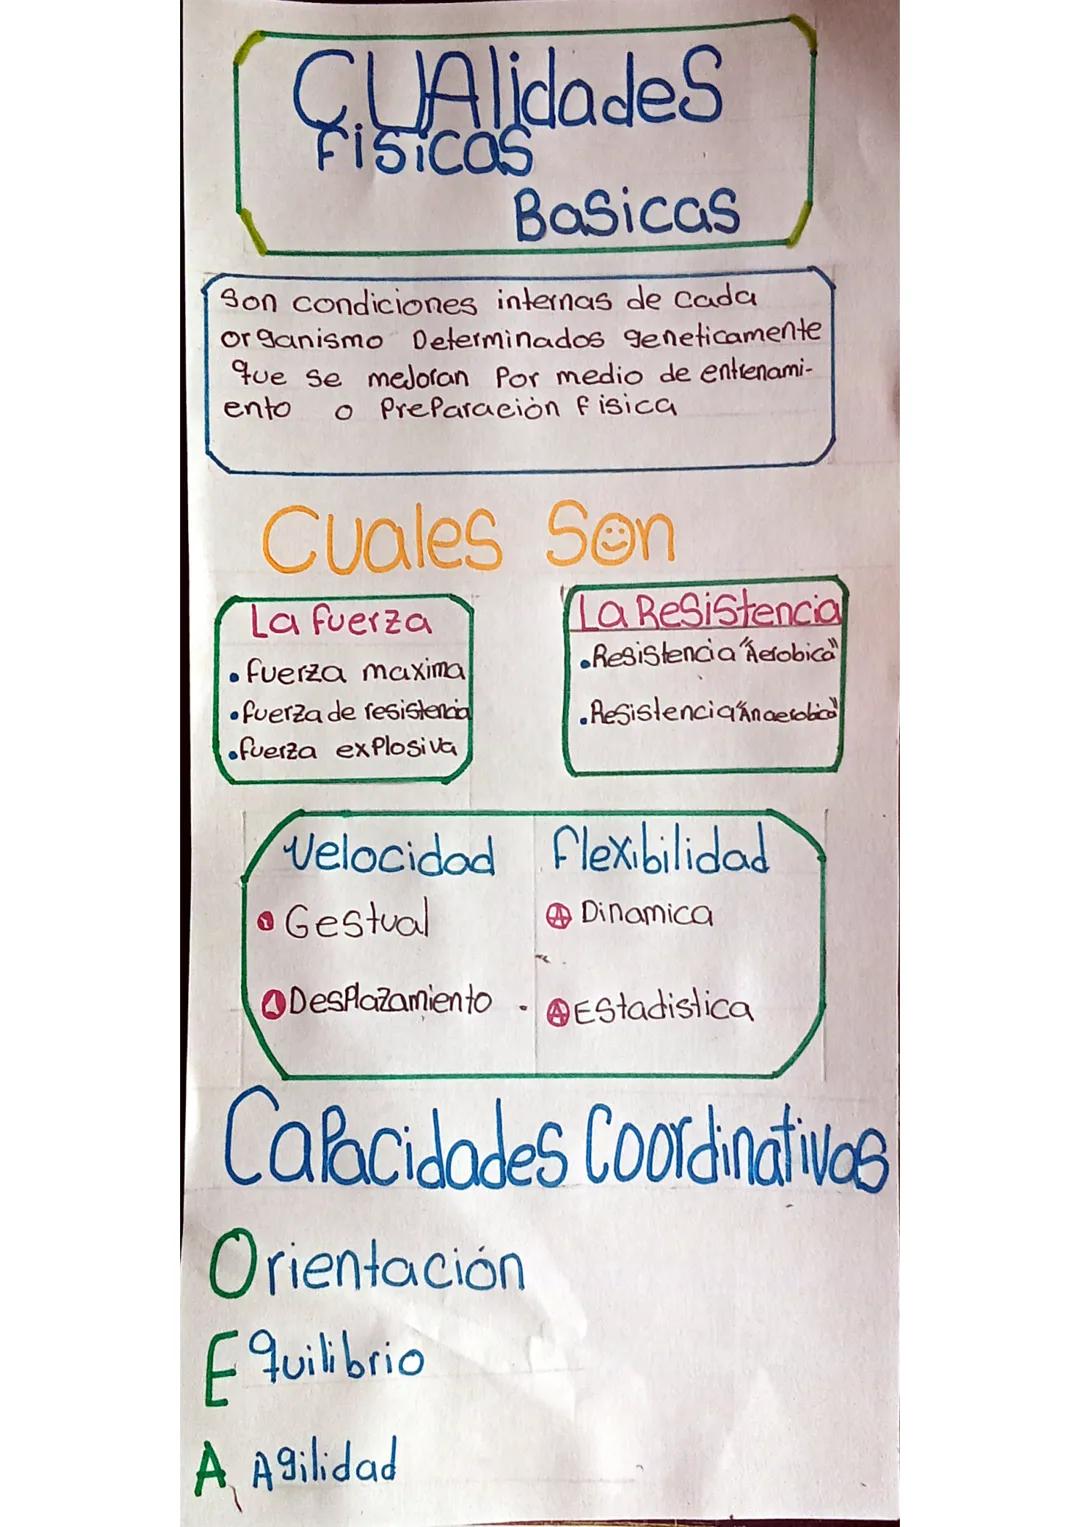 CUAlidadeS
Fisicas
Basicas
Son condiciones internas de cada
organismo Determinados geneticamente
que se mejoran Por medio de entrenami-
ento o Preparación fisica
Cuales Son
La fuerza
• fuerza maxima
• fuerza de resistencia
• fuerza explosiva
La Resistencia
• Resistencia "Aerobica"
• Resistencia "Anaerobica"
Velocidad
Gestual
Desplazamiento
Flexibilidad
Dinamica
Estadistica
Capacidades Coordinativas
Orientación
Equilibrio
A Agilidad